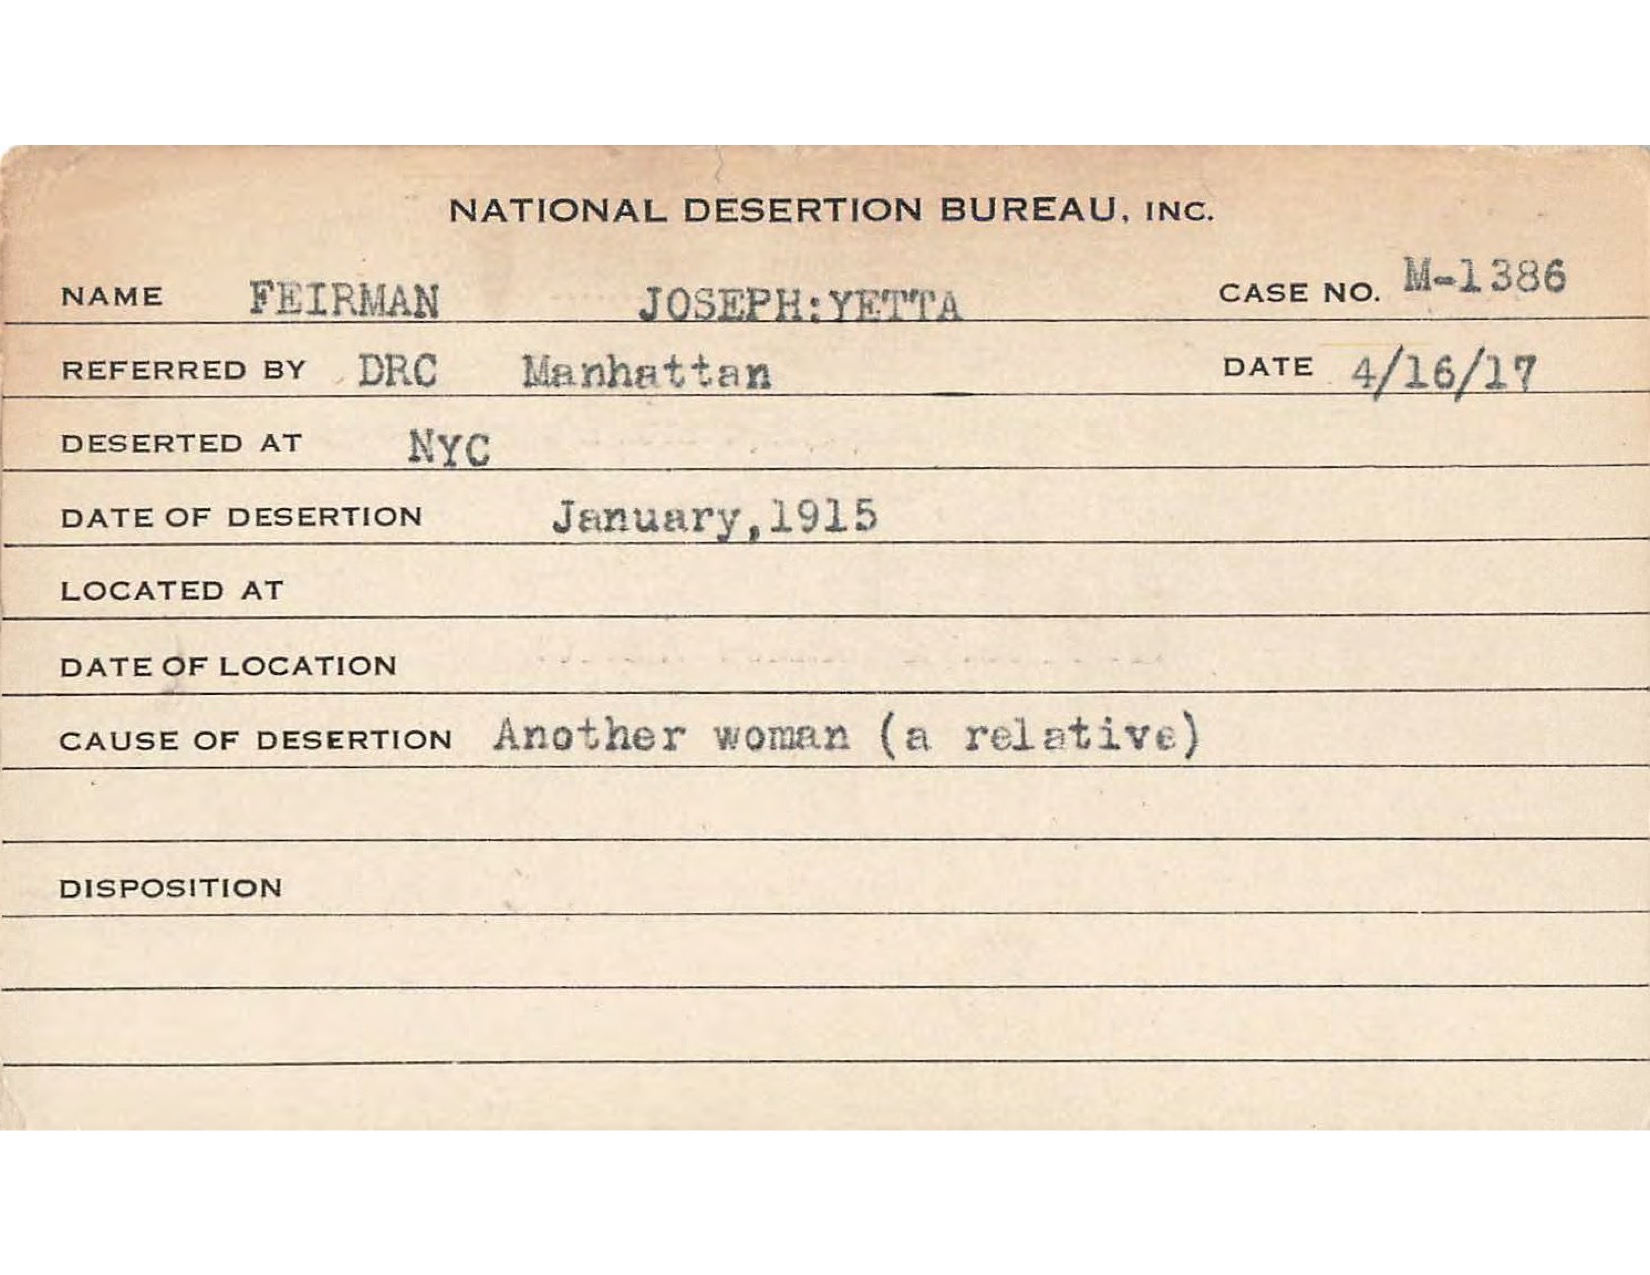 NATIONAL DESERTION BUREAU, INC.
NAME FEIRMAN JOSEPH:YETTA CASE NO. M-1386
REFERRED BY DRC Manhattan DATE 4/16/17
DESERTED AT NYC
DATE OF DESERTION January,1915
LOCATED AT
DATE OF LOCATION
CAUSE OF DESERTION Another woman (a relative)
DISPOSITION